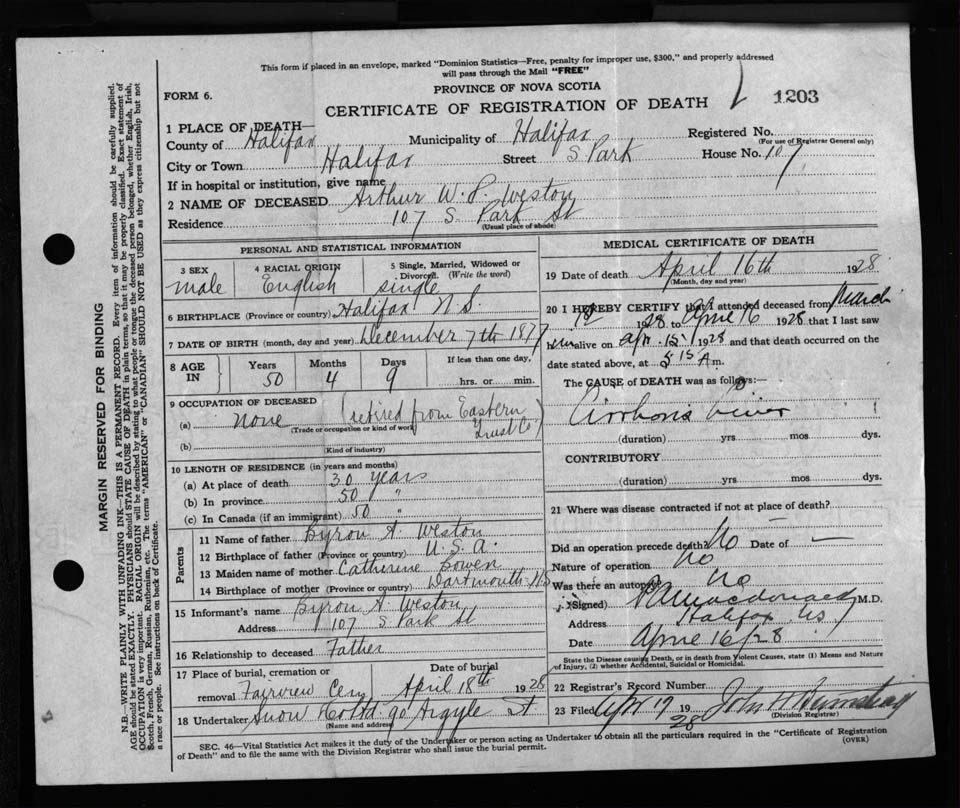 This form if placed in an envelope, marked "Dominion Statistics—Free, penalty for improper use, $300," and properly addressed
will pass through the Mail "FREE"
FORM 6.
PROVINCE OF NOVA SCOTIA
CERTIFICATE OF REGISTRATION OF DEATH
1203
1 PLACE OF DEATH—
County of Halifax Municipality of Halifax Registered No.
(For use of Registrar General only)
City or Town Halifax Street S Park House No. 107
If in hospital or institution, give name
2 NAME OF DECEASED Arthur W. P. Weston
Residence 107 S. Park St
(Usual place of abode)
PERSONAL AND STATISTICAL INFORMATION
3 SEX male
4 RACIAL ORIGIN English
5 Single, Married, Widowed or Divorced. (Write the word) single
6 BIRTHPLACE (Province or country) Halifax N.S.
7 DATE OF BIRTH (month, day and year) December 7th 1877
8 AGE IN Years 50 Months 4 Days 9 If less than one day, hrs. or min.
9 OCCUPATION OF DECEASED
(a) none (retired from Eastern Trust Co)
(Trade or occupation or kind of work)
(b)
(Kind of industry)
10 LENGTH OF RESIDENCE (in years and months)
(a) At place of death 30 years
(b) In province 50 "
(c) In Canada (if an immigrant) 50 "
Parents
11 Name of father Byron A. Weston
12 Birthplace of father (Province or country) U.S.A.
13 Maiden name of mother Catherine Bowen
14 Birthplace of mother (Province or country) Dartmouth NS
15 Informant's name Byron A. Weston
Address 107 S. Park St
16 Relationship to deceased Father
17 Place of burial, cremation or removal Fairview Cem Date of burial April 18th 1928
18 Undertaker Snow & Co Ltd 90 Argyle St.
(Name and address)
MEDICAL CERTIFICATE OF DEATH
19 Date of death April 16th 1928
(Month, day and year)
20 I HEREBY CERTIFY that I attended deceased from March
1928 to April 16 1928 that I last saw
him alive on Apr. 15 1928 and that death occurred on the
date stated above, at 5 15 A m.
The CAUSE of DEATH was as follows:—
Cirrhosis Liver
(duration) yrs mos dys.
CONTRIBUTORY
(duration) yrs mos dys.
21 Where was disease contracted if not at place of death?
Did an operation precede death? No Date of —
Nature of operation No
Was there an autopsy No
(Signed) Macdonald M.D.
Address Halifax NS
Date April 16/28
State the Disease causing Death, or in death from Violent Causes, state (1) Means and Nature
of Injury, (2) whether Accidental, Suicidal or Homicidal.
22 Registrar's Record Number
23 Filed Apr 17 1928 John
(Division Registrar)
SEC. 46—Vital Statistics Act makes it the duty of the Undertaker or person acting as Undertaker to obtain all the particulars required in the "Certificate of Registration
of Death" and to file the same with the Division Registrar who shall issue the burial permit.
(OVER)
MARGIN RESERVED FOR BINDING
N.B.—WRITE PLAINLY WITH UNFADING INK—THIS IS A PERMANENT RECORD. Every item of information should be carefully supplied.
AGE should be stated EXACTLY. PHYSICIANS should STATE CAUSE OF DEATH in plain terms, so that it may be properly classified. Exact statement of
OCCUPATION is very important. RACIAL ORIGIN will be described by stating to what people or tongue the deceased person belonged, whether English, Irish,
Scotch, French, German, Russian, Ruthenian, etc. The terms "AMERICAN" or "CANADIAN" SHOULD NOT BE USED as they express citizenship but not
a race or people. See instructions on back of Certificate.